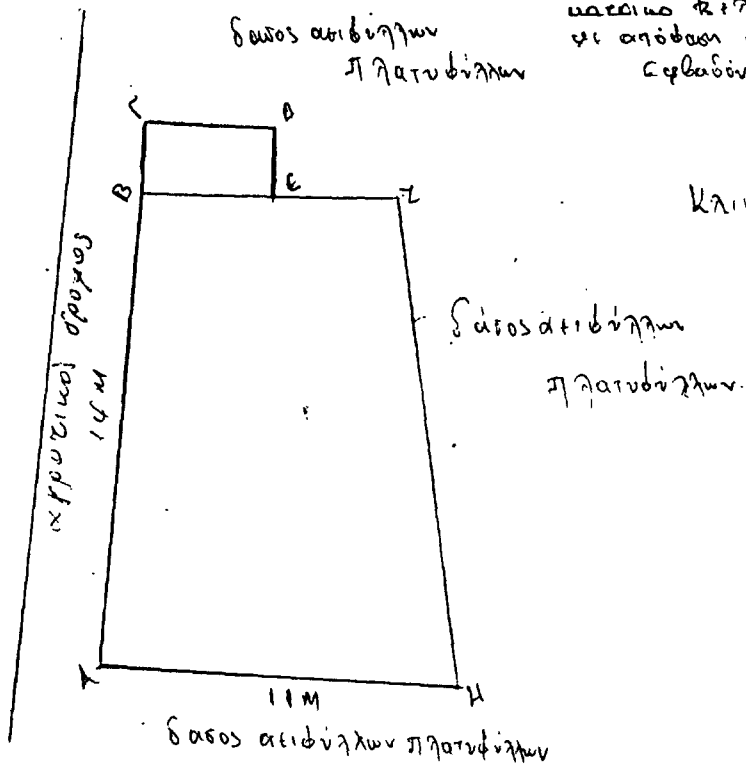 δασος αειφύλλων
πλατυφύλλων
με απόφαση
Εμβαδόν
Γ Δ
Β Ε Ζ
Κλι
αγροτικός δρόμος
14 Μ
δάσος αειφύλλων
πλατυφύλλων.
Α Η
11 Μ
δασος αειφύλλων πλατυφύλλων